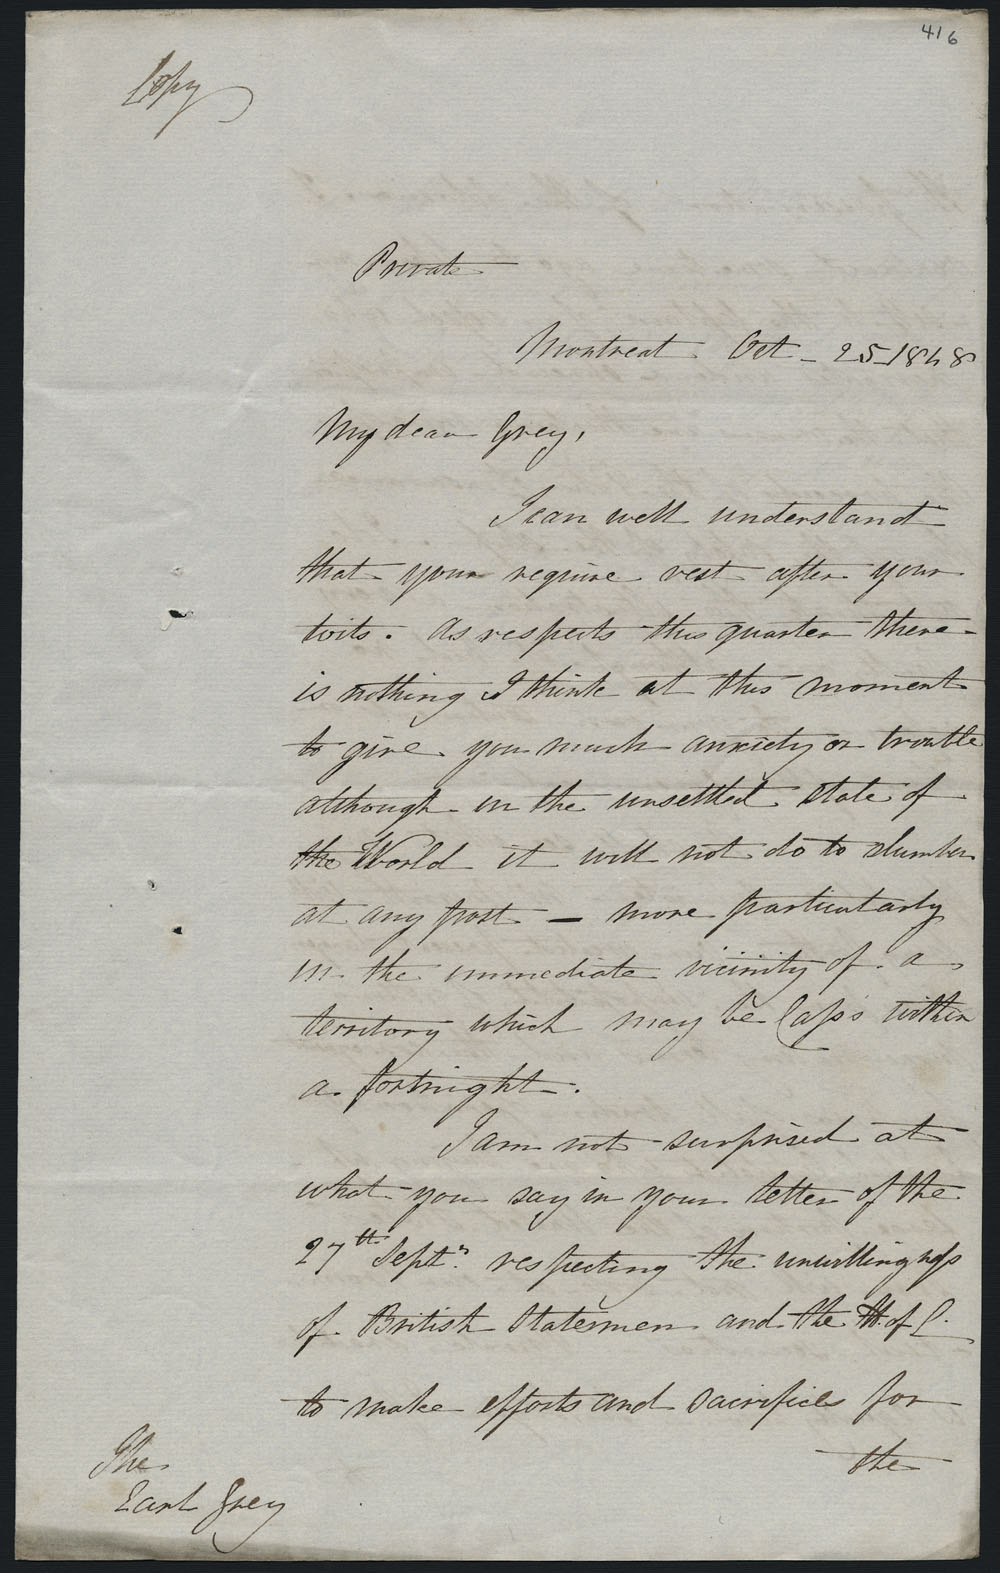 416
Copy
Private
Montreal Oct - 25 1848
My dear Grey,
I can well understand
that your require rest after your
toils. As respects this quarter there
is nothing I think at this moment
to give you much anxiety or trouble
although in the unsettled state of
the World it will not do to slumber
at any post — more particularly
in the immediate vicinity of a
territory which may be Cass's within
a fortnight.
I am not surprised at
what you say in your letter of the
27th Septr. respecting the unwillingness
of British Statesmen and the H. of C.
to make efforts and sacrifices for
the
The
Earl Grey